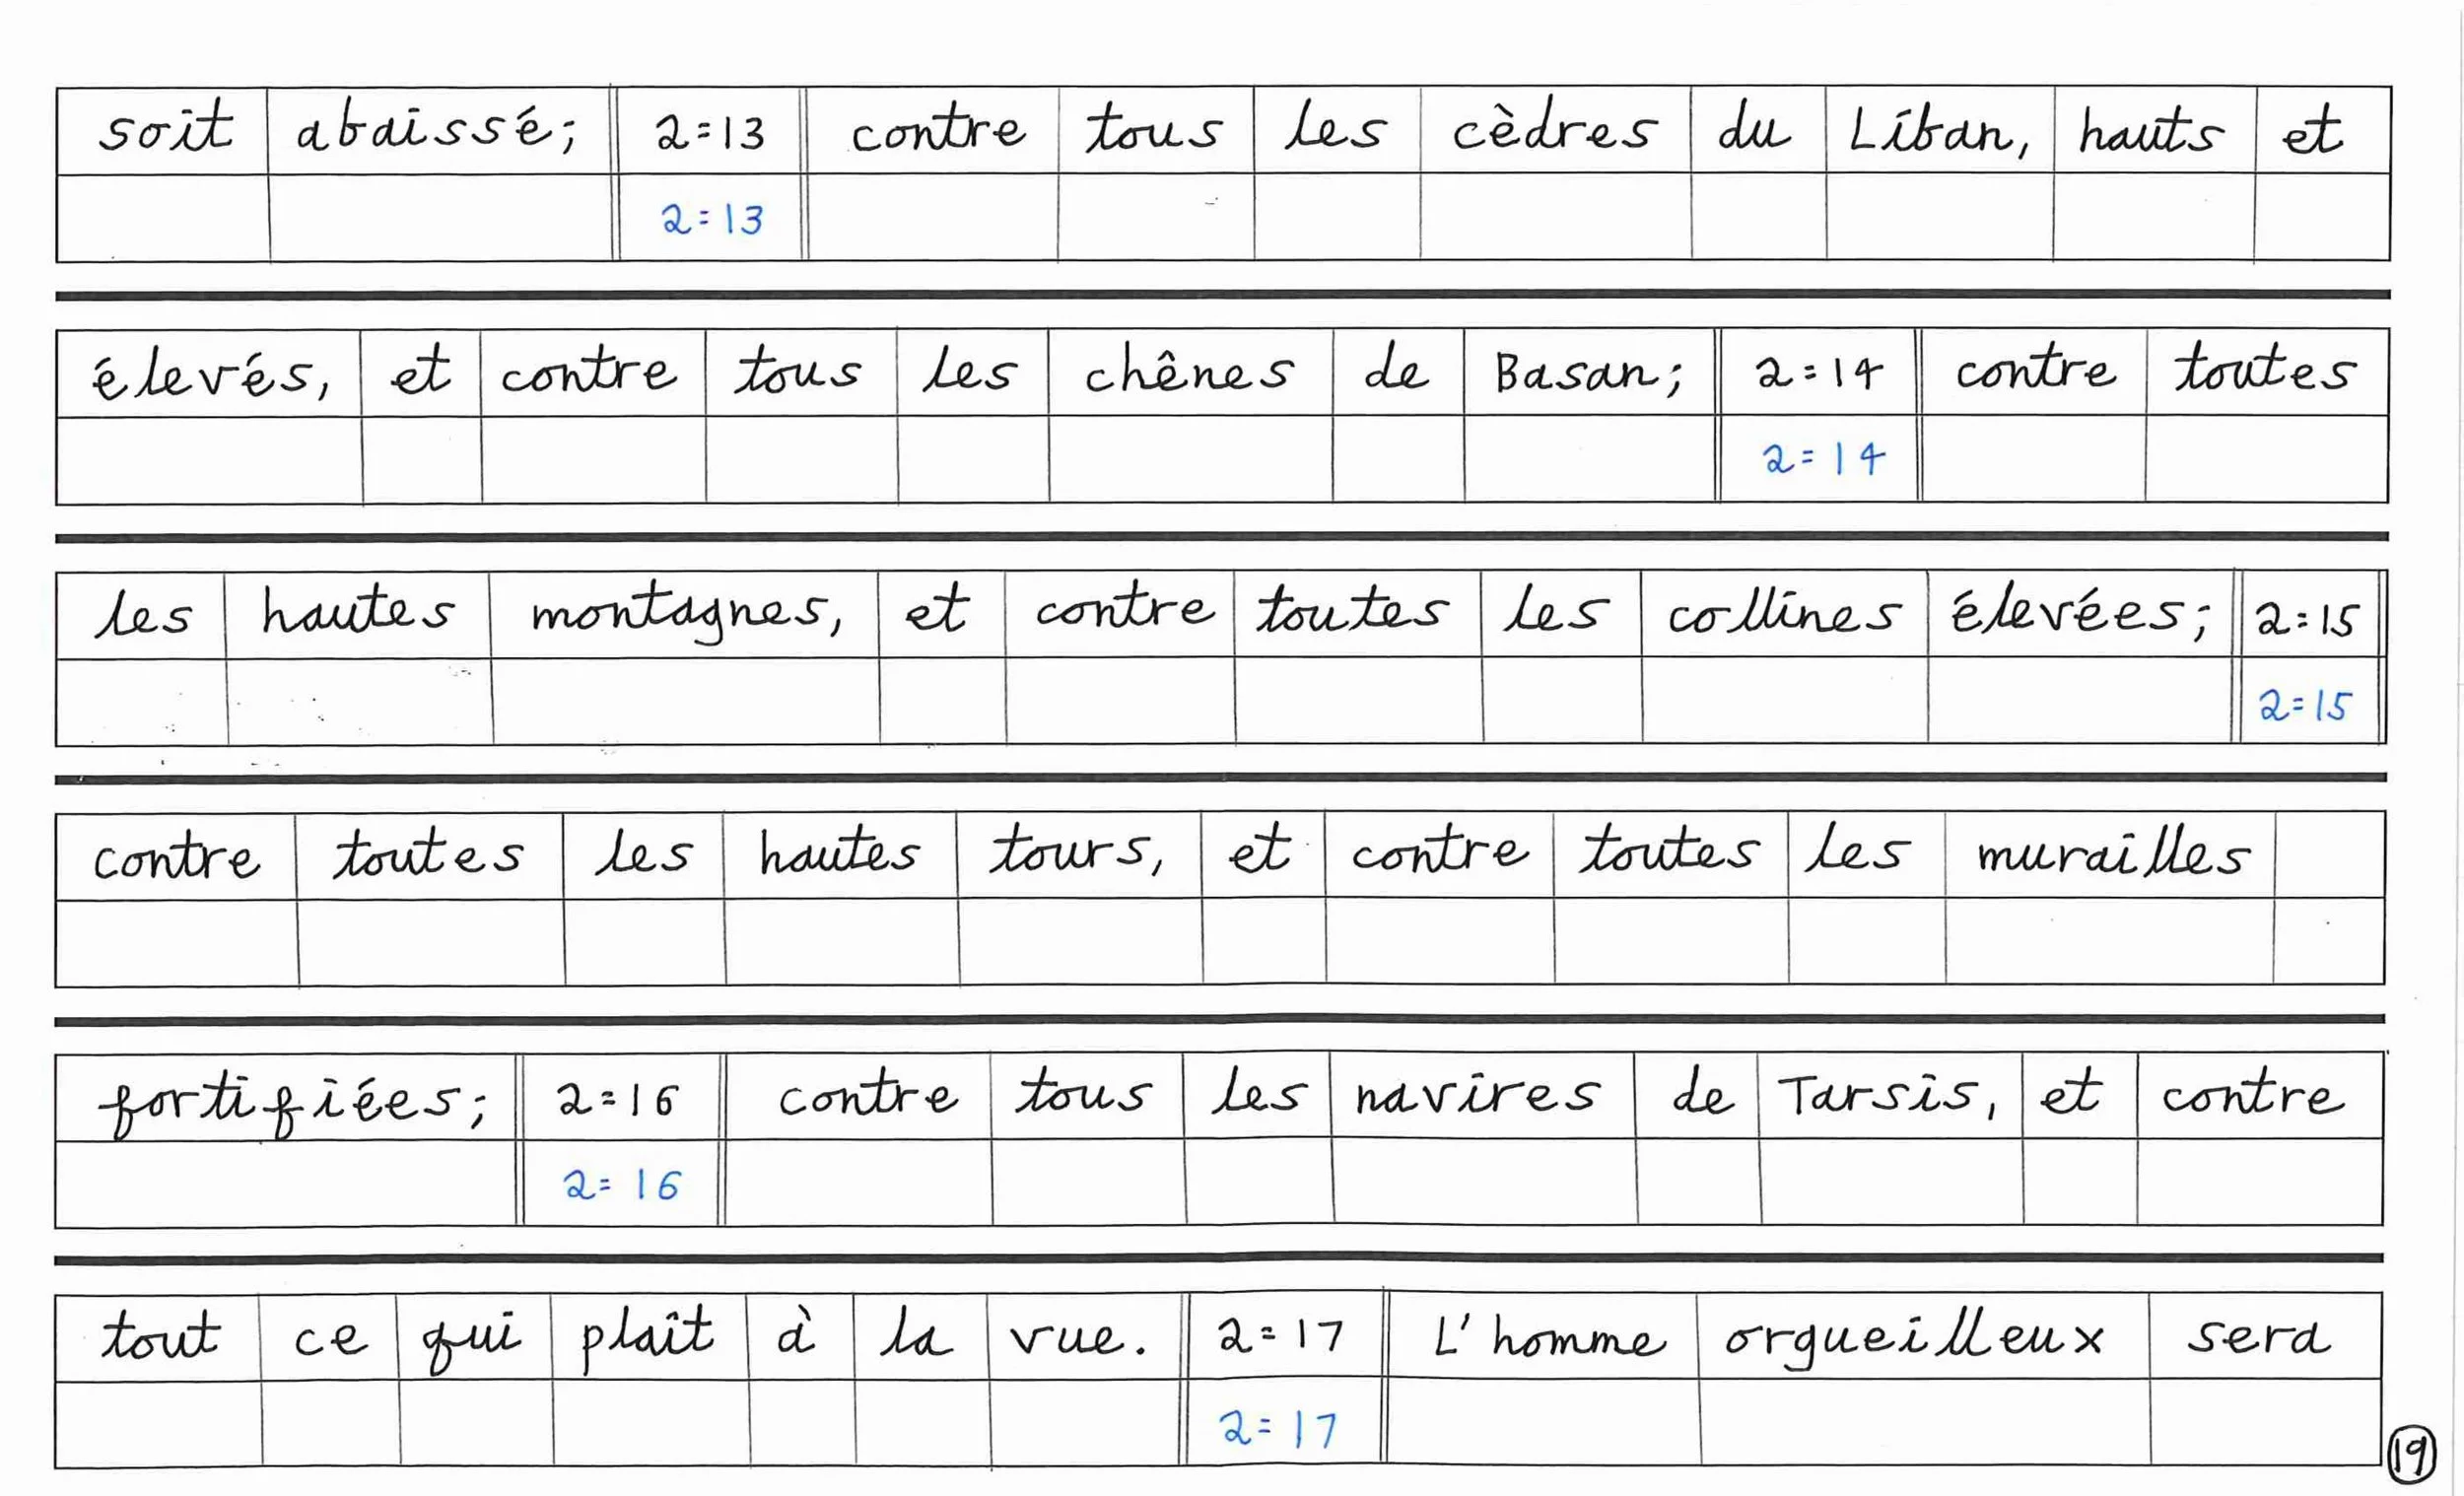 soit abaissé; 2=13 contre tous les cèdres du Liban, hauts et
2=13
élevés, et contre tous les chênes de Basan; 2=14 contre toutes
2=14
les hautes montagnes, et contre toutes les collines élevées; 2=15
2=15
contre toutes les hautes tours, et contre toutes les murailles
fortifiées; 2=16 contre tous les navires de Tarsis, et contre
2=16
tout ce qui plaît à la vue. 2=17 L'homme orgueilleux sera
2=17
19